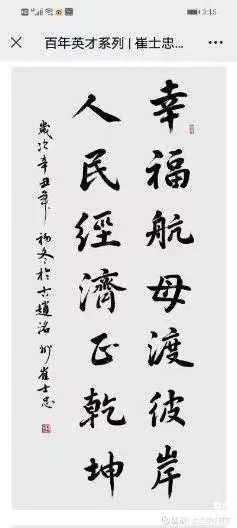 3:15
百年英才系列 | 崔士忠...
幸福航母渡彼岸
人民經濟正乾坤
歲次辛丑年初冬於古趙洺州崔士忠